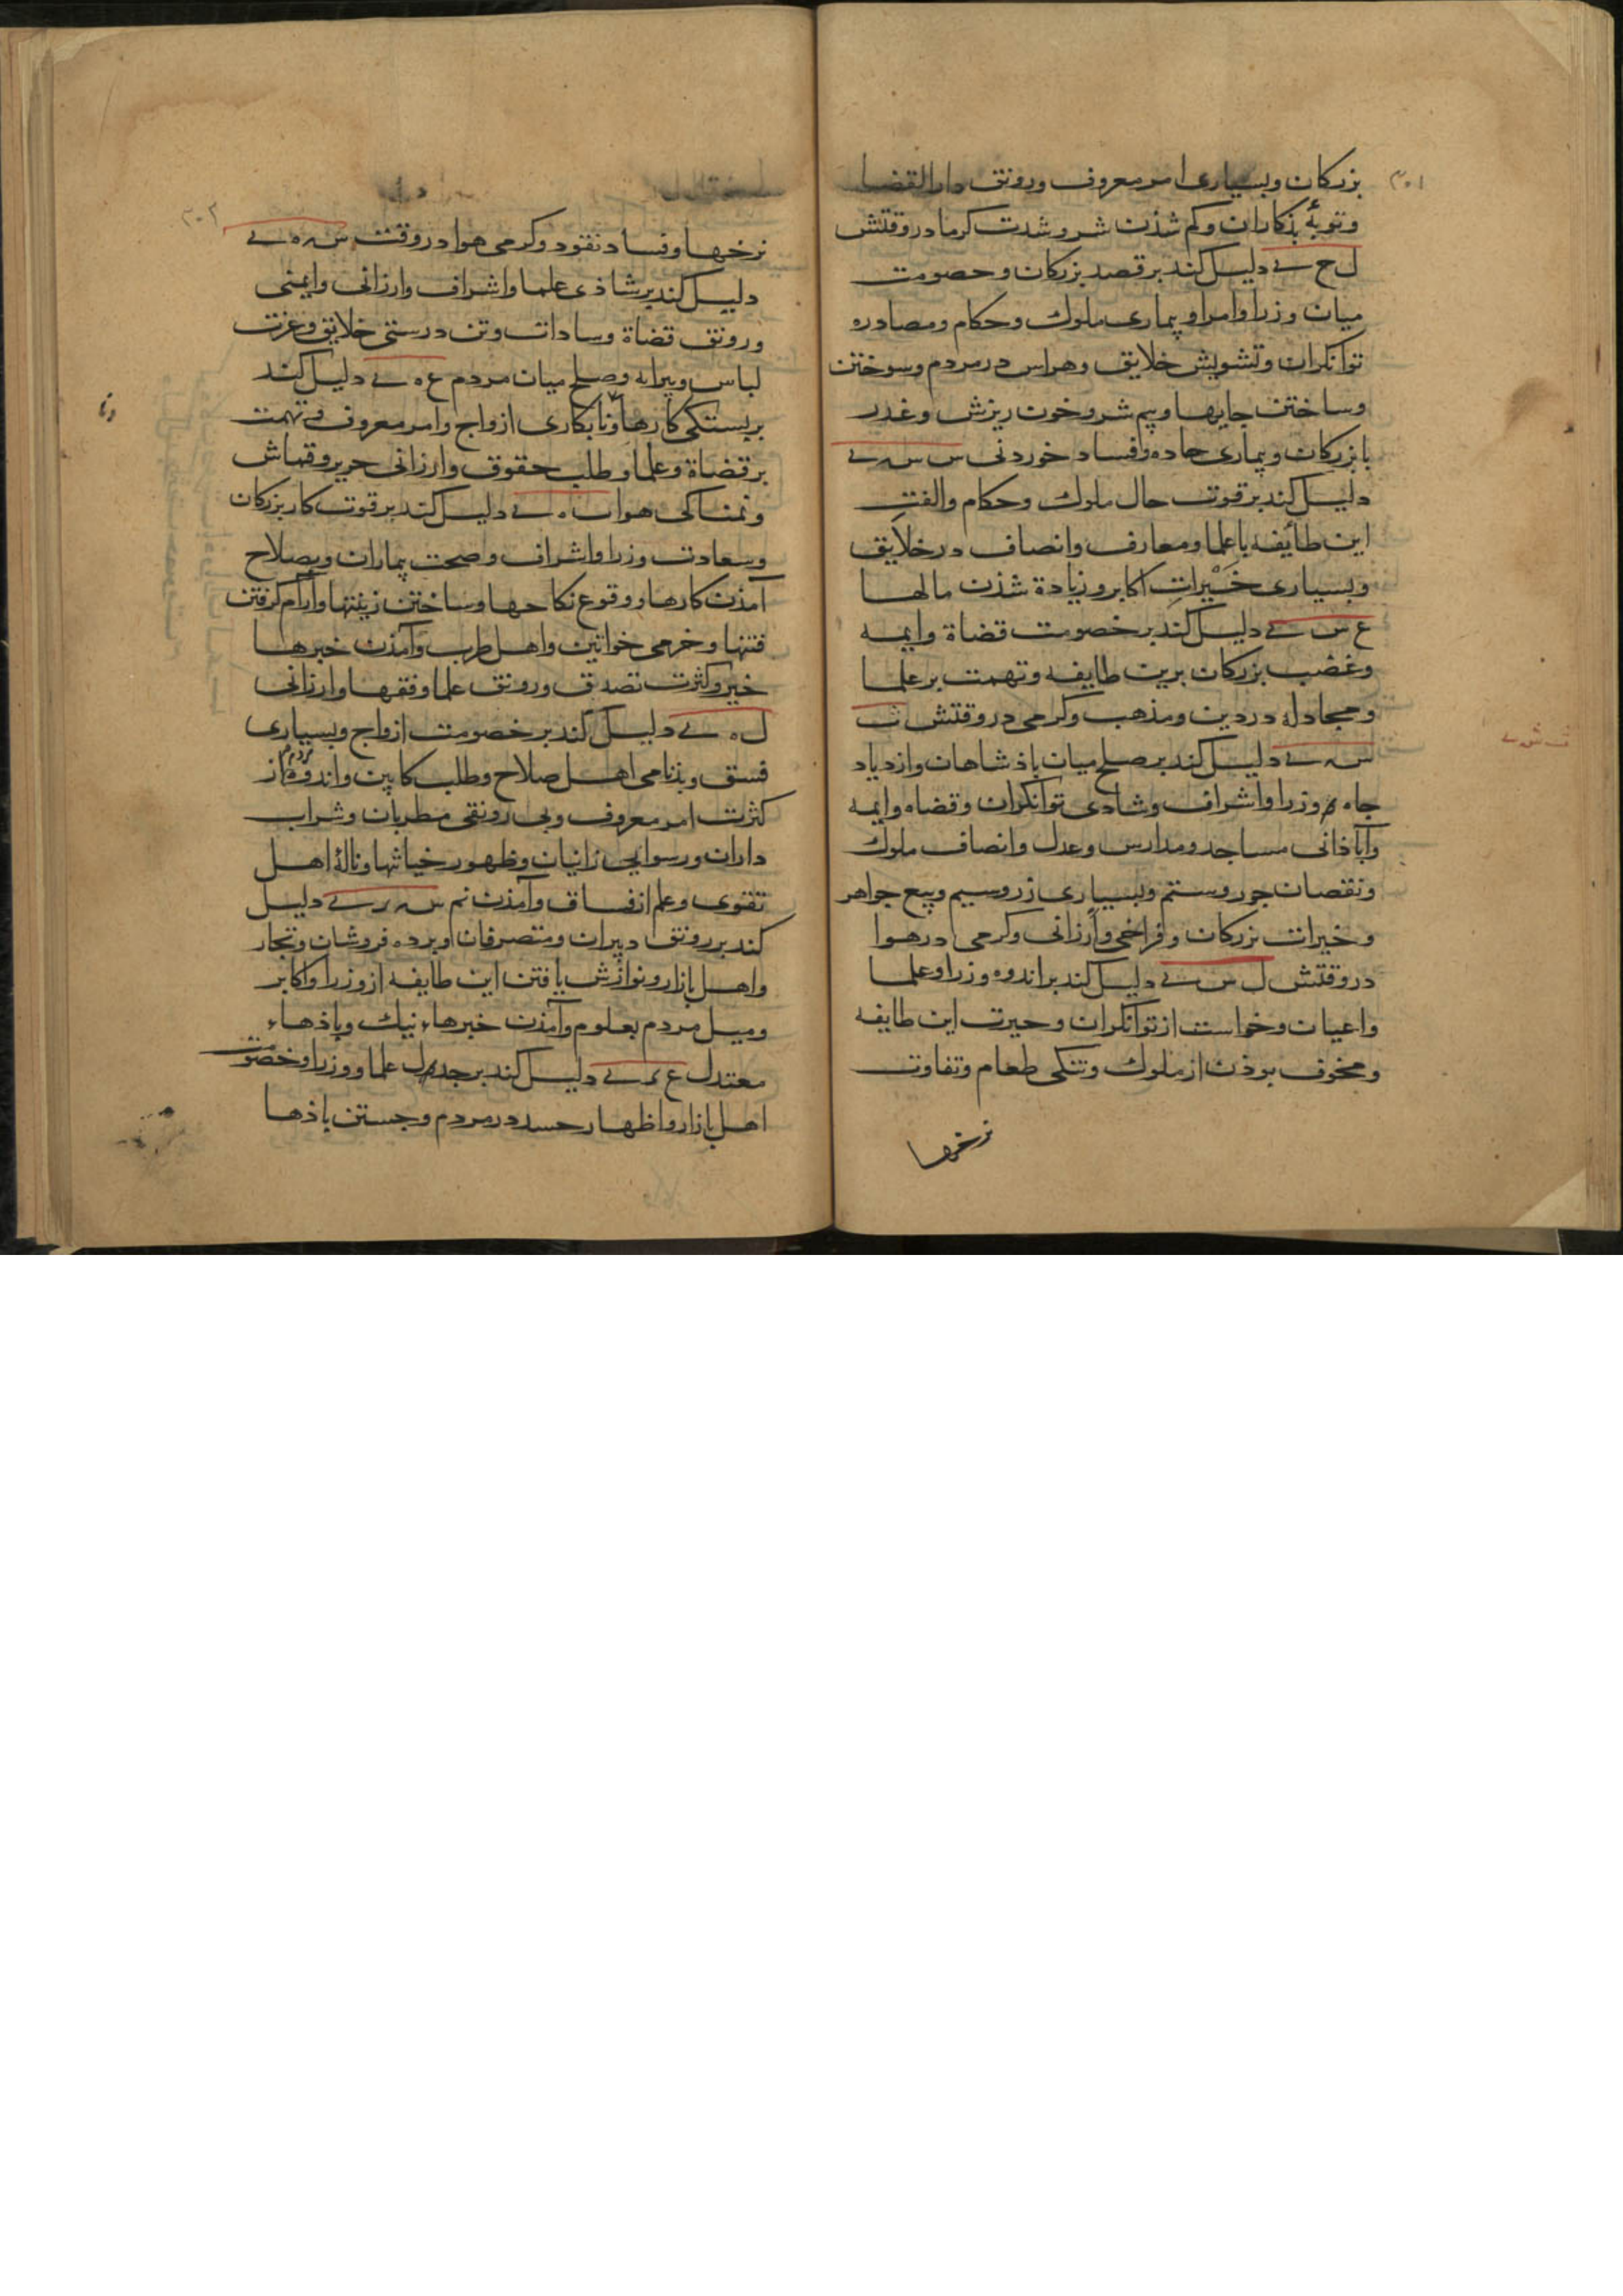 ۳۰۱
بزرکان وبسیاری امر معروف ورونق دار القضا
وتوبهٔ بذکاران وکم شذن شر وشدت کرما در وقتش
ل ح ی دلیل کند بر قصد بزرکان وخصومت
میان وزرا وامرا وبیماری ملوک وحکام ومصادره
توانکران وتشویش خلایق وهراس در مردم وسوختن
وساختن جایها وبیم شر وخون ریزش وغدر
با بزرکان وبیماری حاده وفساد خوردنی س س ی
دلیل کند بر قوت حال ملوک وحکام والفت
این طایفه با علما ومعارف وانصاف در خلایق
وبسیاری خَیْراتِ اکابر وزیادة شذن مالها
ع س ی دلیل کند بر خصومت قضاة وایمه
وغضب بزرکان برین طایفه وتهمت بر علما
ومجادله در دین ومذهب وکرمی در وقتش ث
س ی دلیل کند بر صلح میان باذشاهان وازدیاد
جاه وزرا واشراف وشادی توانکران وقضاه وایمه
وآباذانی مساجد ومدارس وعدل وانصاف ملوک
ونقصان جور وستم وبسیاری زر وسیم وبیع جواهر
وخیرات بزرکان وفراخی وارزانی وکرمی در هوا
در وقتش ل س ی دلیل کند بر اندوه وزرا وعلما
واعیان وخواست از توانکران وحیرت این طایفه
ومخوف بوذن از ملوک وتنکی طعام وتفاوت
نرخها
۳۰۲
نرخها وفساد نقود وکرمی هوا در وقت س ه ی
دلیل کند بر شاذی علما واشراف وارزانی وایمنی
ورونق قضاة وسادات وتن درستی خلایق وعزت
لباس وپیرایه وصلح میان مردم ع ه ی دلیل کند
بر بستکی کارها ونابکاری ازواج وامر معروف وتهمت
بر قضاة وعلما وطلب حقوق وارزانی حریر وقماش
ونمناکی هوا ث ه ی دلیل کند بر قوت کار بزرکان
وسعادت وزرا واشراف وصحت بیماران وبصلاح
آمذن کارها ووقوع نکاحها وساختن زینتها وآرام کرفتن
فتنها وخرمی خواتین واهل طرب وآمذن خبرها
خیر وکثرت تصدق ورونق علما وفقها وارزانی
ل ه ی دلیل کند بر خصومت ازواج وبسیاری
فسق وبذنامی اهل صلاح وطلب کابین واندوه مردم از
کثرت امر معروف وبی رونقی مطربان وشراب
داران ورسوایی زانیان وظهور خیانتها ونالهٔ اهل
تقوی وعلم از فساق وآمذن نم س ر ی دلیل
کند بر رونق دبیران ومتصرفان وبرده فروشان وتجار
واهل بازار ونوازش یافتن این طایفه از وزرا واکابر
ومیل مردم بعلوم وآمذن خبرهاء نیک وباذهاء
معتدل ع ر ی دلیل کند بر جدل علما ووزرا وخصومت
اهل بازار واظهار حسد در مردم وجستن باذها